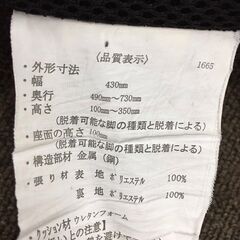 〈品質表示〉
1665
・外形寸法
・幅 430mm
・奥行 490mm～730mm
・高さ 100～350mm
（脱着可能な脚の種類と脱着による）
・座面の高さ 100
（脱着可能な脚の種類と脱着による）
・構造部材 金属（鋼）
・張り材 表 地 ポリエステル 100%
裏 地 ポリエステル 100%
・クッション材 ウレタンフォーム
い上の注意】
を避けて下